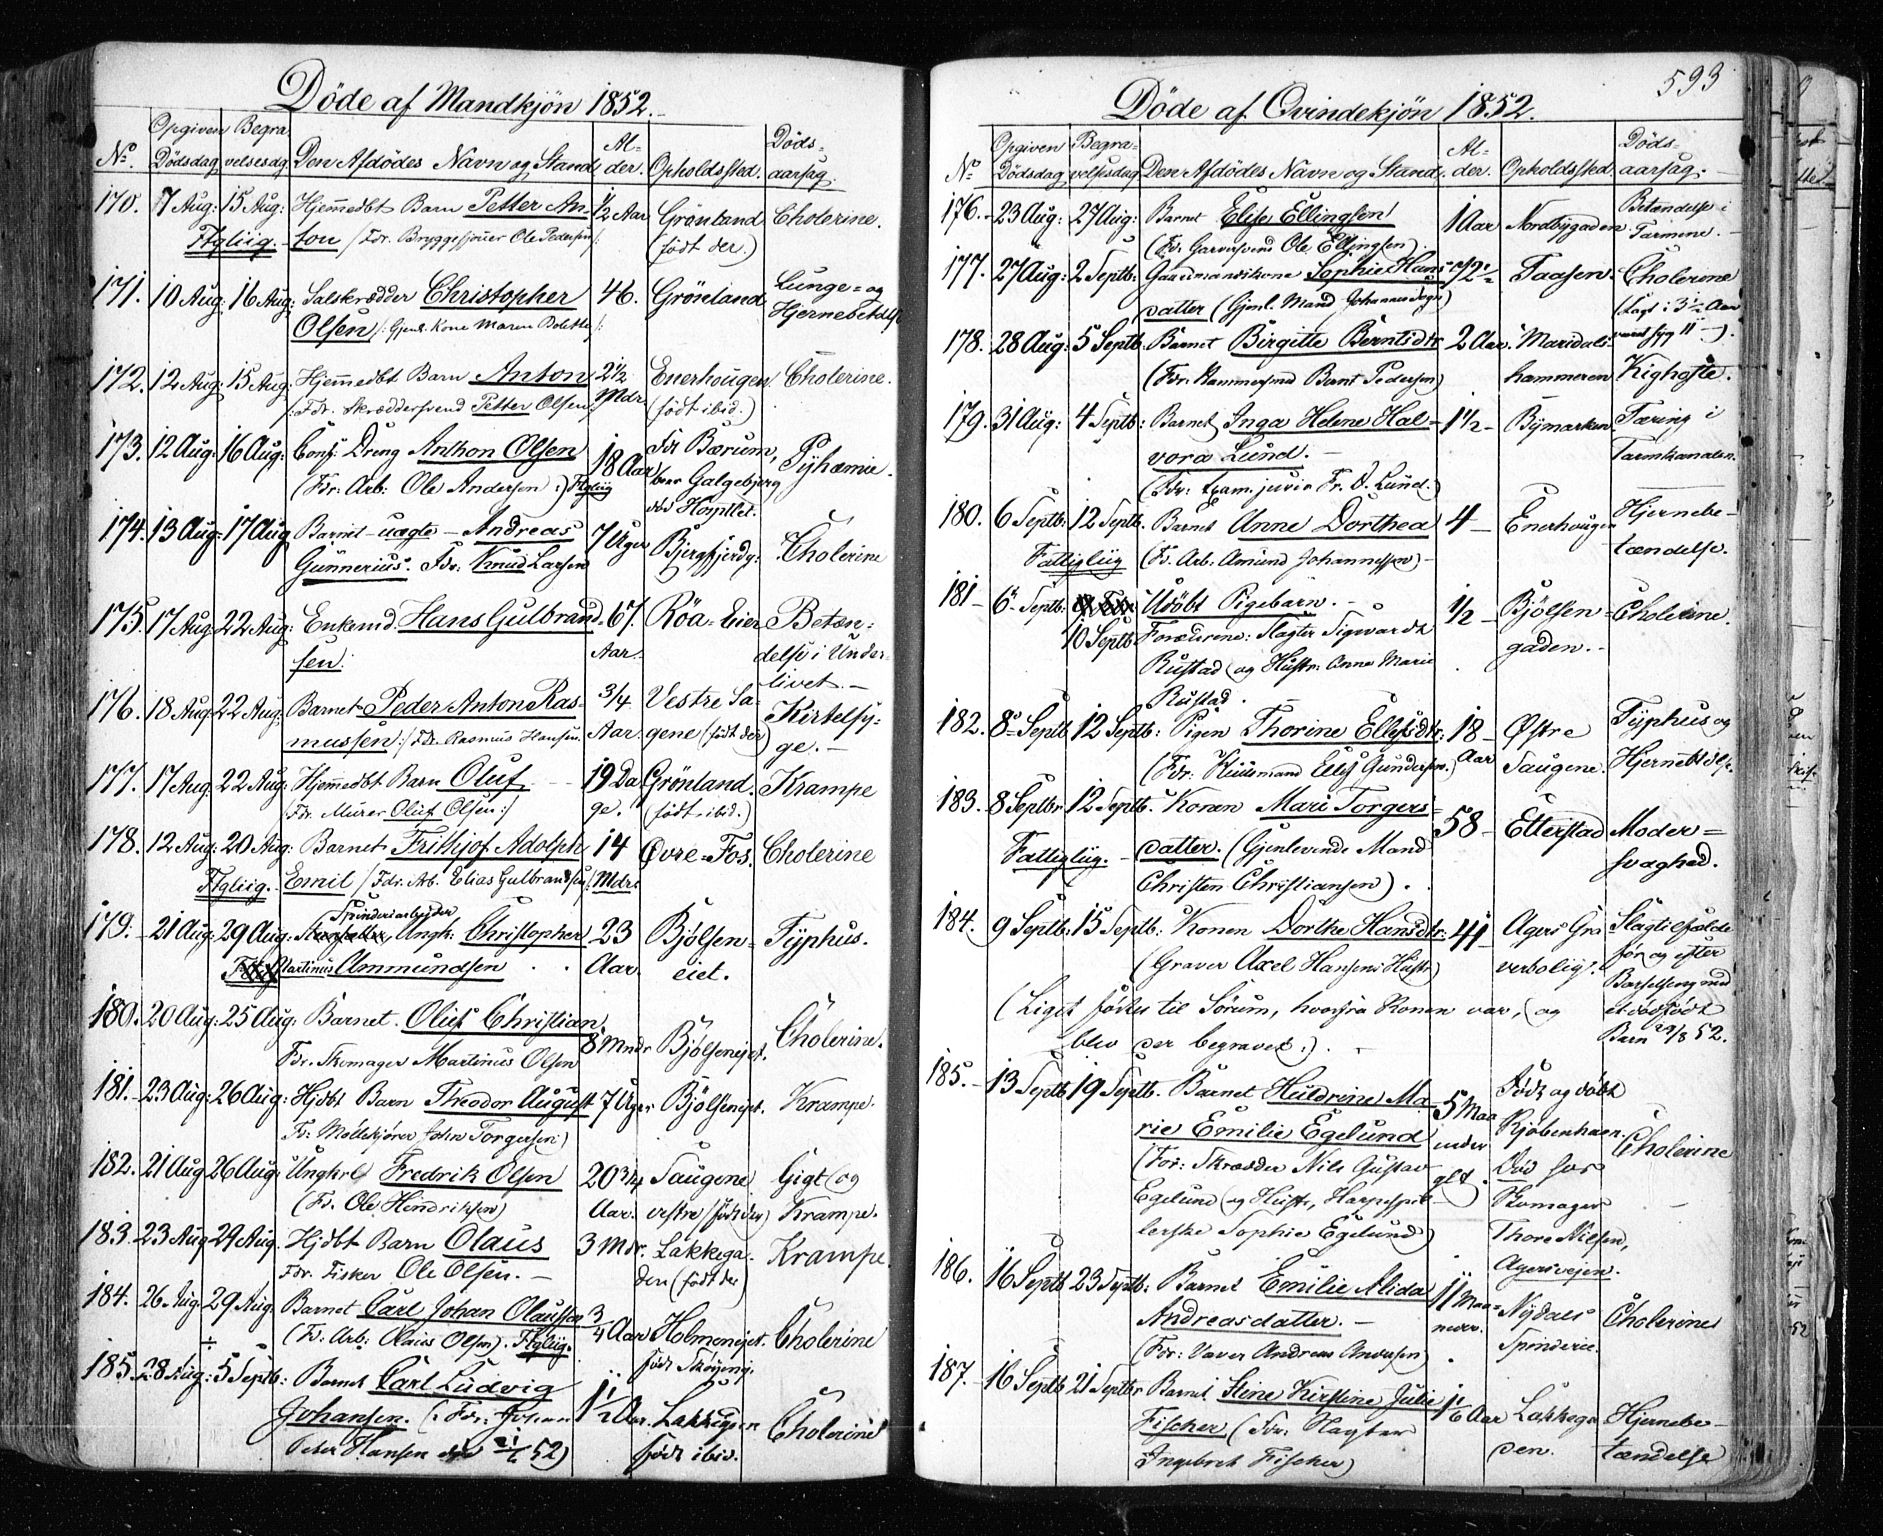 Döde af Mandkjön 1852.
No. Opgiven Dödsdag Begravelsesdag Den Afdödes Navn og Stand Alder. Opholdssted. Dödsaarsag.
170. 7 Aug: 15 Aug: Hjemmedbt Barn Petter An- 1/2 Aar Grönland Cholerine.
Ftgliig. ton /: Fdr. Bryggesjouer Ole Pedersen :/ (födt der.)
171. 10 Aug: 16 Aug: Christopher 46. Grönland Lunge- og
Olsen /: Gjenl. Kone Maren Bolette :/ Hjernebetdlse
172. 12 Aug: 15 Aug: Hjemmedbt Barn Anton 2 1/2 Enerhougen Cholerine.
/: Fdr. Skræddersvend Petter Olsen :/ Mdr. (födt ibid.)
173. 12 Aug: 16 Aug: Conf. Dreng Anthon Olsen 18 Aar Bærum, Pyhæmie.
(Fdr: Arb: Ole Andersen :) Ftgliig Galgebjerg
död Hospitlet.
174. 13 Aug: 17 Aug Barnet - uægte - Andreas 7 Uger Bjergfjerdg: Cholerine
Gunnerius. Fdr: Knud Larsen
175. 17 Aug: 22 Aug: Enkemd. Hans Gulbrand- 67. Röa-Eier Betæn-
sen. Aar. delse i Under-
livet. -
176. 18 Aug: 22 Aug: Barnet Peder Anton Ras- 3/4 Vestre Sa- Kirtelsy-
mussen /: Fdr. Rasmus Hansen. Aar. gene (födt der) ge. -
177. 17 Aug: 22 Aug: Hjemmedbt Barn Oluf 19 Da Grönland. Krampe
/: Fdr. Murer Oluf Olsen :/ ge. (födt ibid.)
178. 12 Aug: 20 Aug: Barnet Frithjof Adolph 14 Øvre-Fos. Cholerine
Ftgliig. Emil /: Fdr. Arb. Elias Gulbrandsen :/ Mdr.
179. 21 Aug: 29 Aug: Spinderiarbeider Ungk. Christopher 23 Bjölsen- Typhus.
Martinus Ammundsen Aar. eiet.
180. 20 Aug: 25 Aug: Barnet. Oluf Christian. 8 Mndr Bjölseneiet. Cholerine.
Fdr. Skomager Martinus Olsen
181. 23 Aug: 26 Aug: Hjdbt Barn Theodor August 7 Uger Bjölseneiet. Krampe.
Fr: Möllekjörer John Torgersen)
182. 21 Aug 26 Aug: Ungkrl Fredrik Olsen 20 3/4 Saugene Gigt og
(Fr. Ole Hendriksen) Aar. vestre (födt der) Krampe.
183. 23 Aug 29 Aug. Hjdbt Barn Olaus 3 Mdr. Lakkega- Krampe.
Fdr. Fisker Ole Olsen. - den (födt der)
184. 26 Aug. 29 Aug. Barnet Carl Johan Olaussen 3/4 Aar Holmeneiet. Cholerine
(Fr: Arb: Olaus Olsen). Ftgliig. födt
185. 28 Aug: 5 Septb: Barnet Carl Ludvig 1 1/2 Aar. Lakkegaden Cholerine
Johansen. (: Fdr: Johan födt ibid.
Peter Hansen 52)
593
Döde af Qvindekjön 1852.
No Opgiven Dödsdag Begravelsesdag Den Afdödes Navn og Stand. Alder. Opholdssted. Dödsaarsag.
176. 23 Aug: 27 Aug: Barnet Elise Ellingsen 1 Aar Nordbygaden Betændelse i
(Fr. Garversvend Ole Ellingsen). Tarmene. -
177. 27 Aug: 2 Septb: Gaardmandskone Sophie Hans- Taasen. Cholerine
datter (Gjenl. Mand Johannes) (Lagt i 3 1/2 Aar
178. 28 Aug: 5 Septb. Barnet Birgitte Berntsdtr 2 Aar. Maridals-
(Fdr: Hammersmed Bernt Pedersen) hammeren Kighoste.
179. 31 Aug: 4 Septb: Barnet Inga Helene Hal- 1 1/2 - Bymarken. Tæring i
vora Lund. - Tarmkanalen.
(Fdr: Exam. juris Fr. V. Lund.)
180. 6 Septb: 12 Septb. Barnet Anne Dorthea 4 - Enerhougen Hjernebe-
Fattigliig (Fr. Arb: Amund Johannessen) - tændelse.
181 - 6 Septb: Udöbt Pigebarn. - 1/2 - Bjölsen- Cholerine.
10 Septb: Forældrene: Slagter Sigvardt gaden. -
Rustad og Hustr: Anne Marie
Rustad.
182. 8 Septb 12 Septb: Pigen Thorine Ellefsdtr: 18 - Østre Typhus og
(Fdr: Huusmand Ellef Gundersen.) Aar Saugene. Hjernebtdlse.
183. 8 Septbr 12 Septb. Konen Mari Torgers- 58 - Etterstad Moder-
Fattigliig. - datter. (Gjenlevende Mand svaghed.
Christen Christiansen).
184. 9 Septb: 15 Septb. Konen Dorthe Hansdtr: 41 - Agers Gra Slagtilfælde
(Graver Axel Hansens Hustr) verbolig. för og efter
Barselseng med
(Liget förtes til Sörum, hvorfra Konen var, og et dödfödt
blev der begravet:). Barn 29/8 52.
185. - 13 Septb 19 Septb. Barnet Huldrine Ma- 5 Maa Födt og döbt
rie Emilie Egelund neder Kjöbenhavn. Cholerine
(For: Skrædder Nils Gustav gl. Död hos
Egelund og Hustr, Harpespil- Skomager
lerske Sophie Egelund) Thore Nilsen,
Agersveien.
186. 16 Septb 23 Septb: Barnet Emilie Alida 11 Maa- Nydalens Cholerine
Andreasdatter. - neder. Spinderie.
(For: Væver Andreas Andersen)
187. - 16 Septb 21 Septbr Barnet. Stine Kirstine Julie 1 1/6 Aar Lakkega Hjernebe-
Fischer (For: Slagter den. tændelse
Ingebret Fischer)